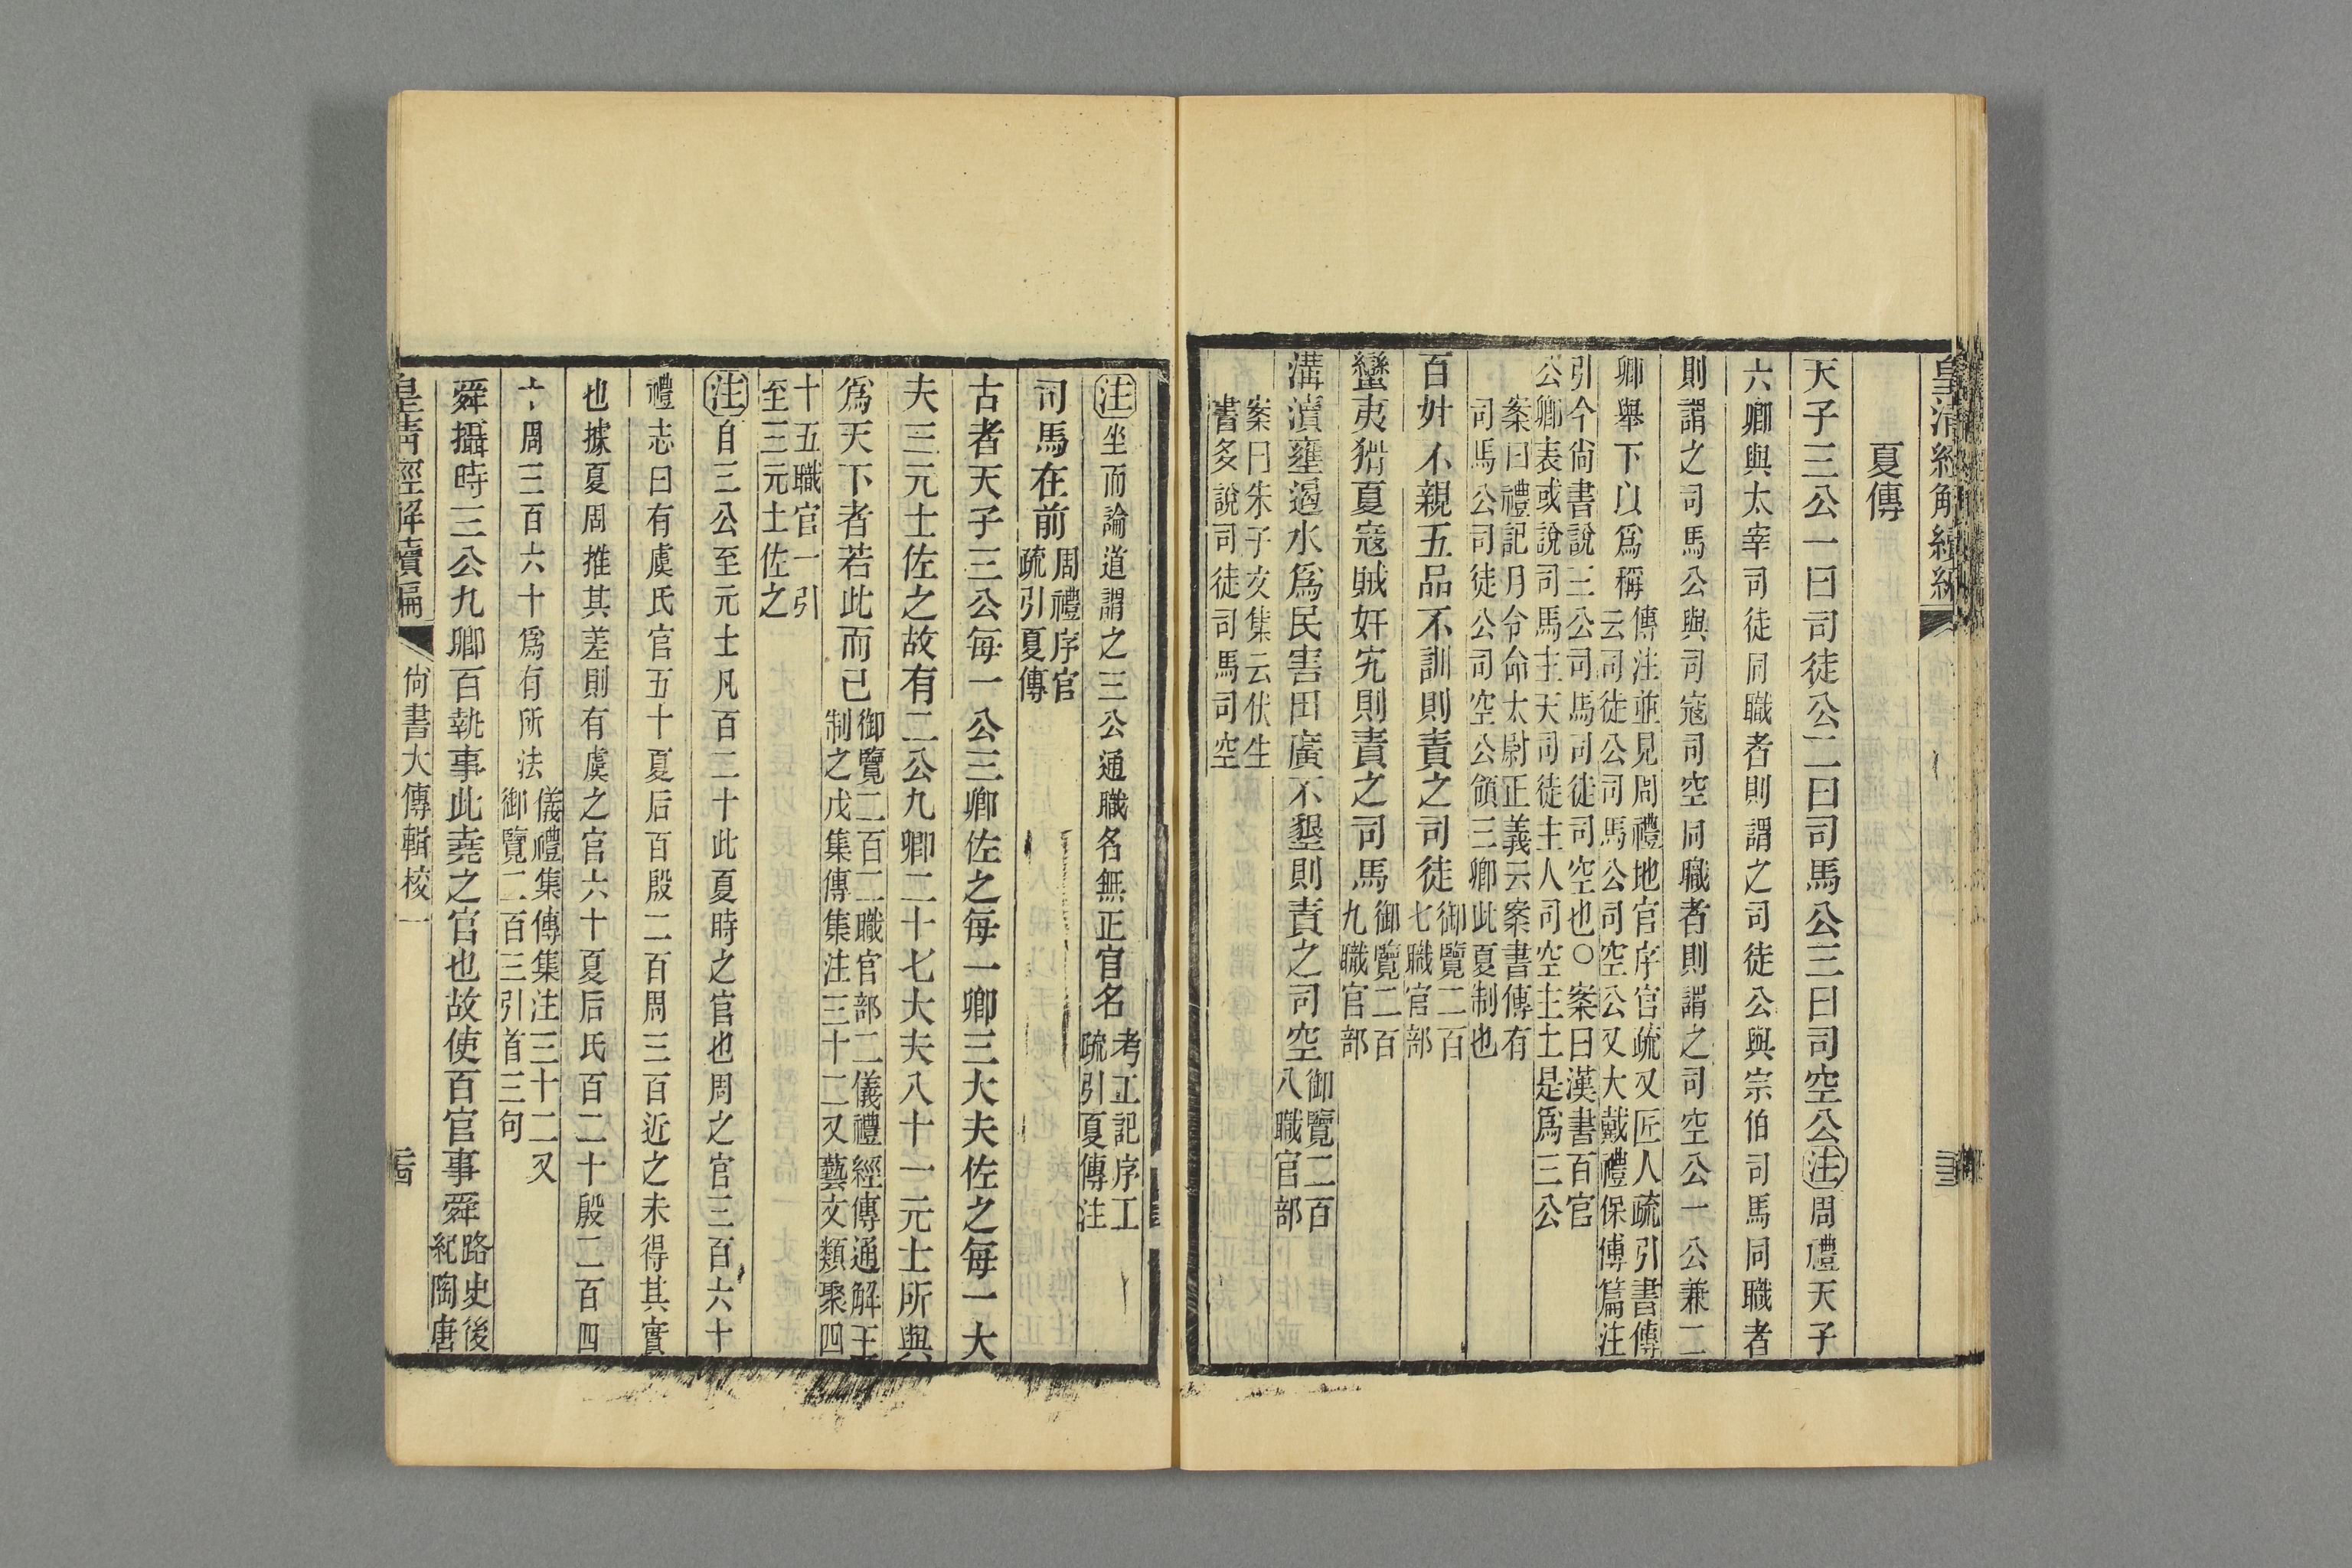 皇清經解續編
夏傳
天子三公一曰司徒公二曰司馬公三曰司空公注周禮天子
六卿與太宰司徒同職者則謂之司徒公與宗伯司馬同職者
則謂之司馬公與司寇司空同職者則謂之司空公一公兼二
卿舉下以爲稱
傳注並見周禮地官序官疏又匠人疏引書傳
云司徒公司馬公司空公又大戴禮保傅篇注
引今尙書說三公司馬司徒司空也○案曰漢書百官
公卿表或說司馬主天司徒主人司空主土是爲三公
案曰禮記月令命太尉正義云案書傳有
司馬公司徒公司空公領三卿此夏制也
百姓不親五品不訓則責之司徒
御覽二百
七職官部
蠻夷猾夏寇賊奸宄則責之司馬
御覽二百
九職官部
溝瀆壅遏水爲民害田廣不墾則責之司空
御覽二百
八職官部
案曰朱子文集云伏生
書多說司徒司馬司空
注坐而論道謂之三公通職名無正官名
考工記序工
疏引夏傳注
司馬在前
周禮序官
疏引夏傳
古者天子三公每一公三卿佐之每一卿三大夫佐之每一大
夫三元士佐之故有三公九卿二十七大夫八十一元士所與
爲天下者若此而已
御覽二百二職官部二儀禮經傳通解王
制之戊集傳集注三十二又藝文類聚四
十五職官一引
至三元士佐之
注自三公至元士凡百二十此夏時之官也周之官三百六十
禮志曰有虞氏官五十夏后百殷二百周三百近之未得其實
也據夏周推其差則有虞之官六十夏后氏百二十殷二百四
十周三百六十爲有所法
儀禮集傳集注三十二又
御覽二百三引首三句
舜攝時三公九卿百執事此堯之官也故使百官事舜
路史後
紀陶唐
皇淸經解續編
尙書大傳輯校一